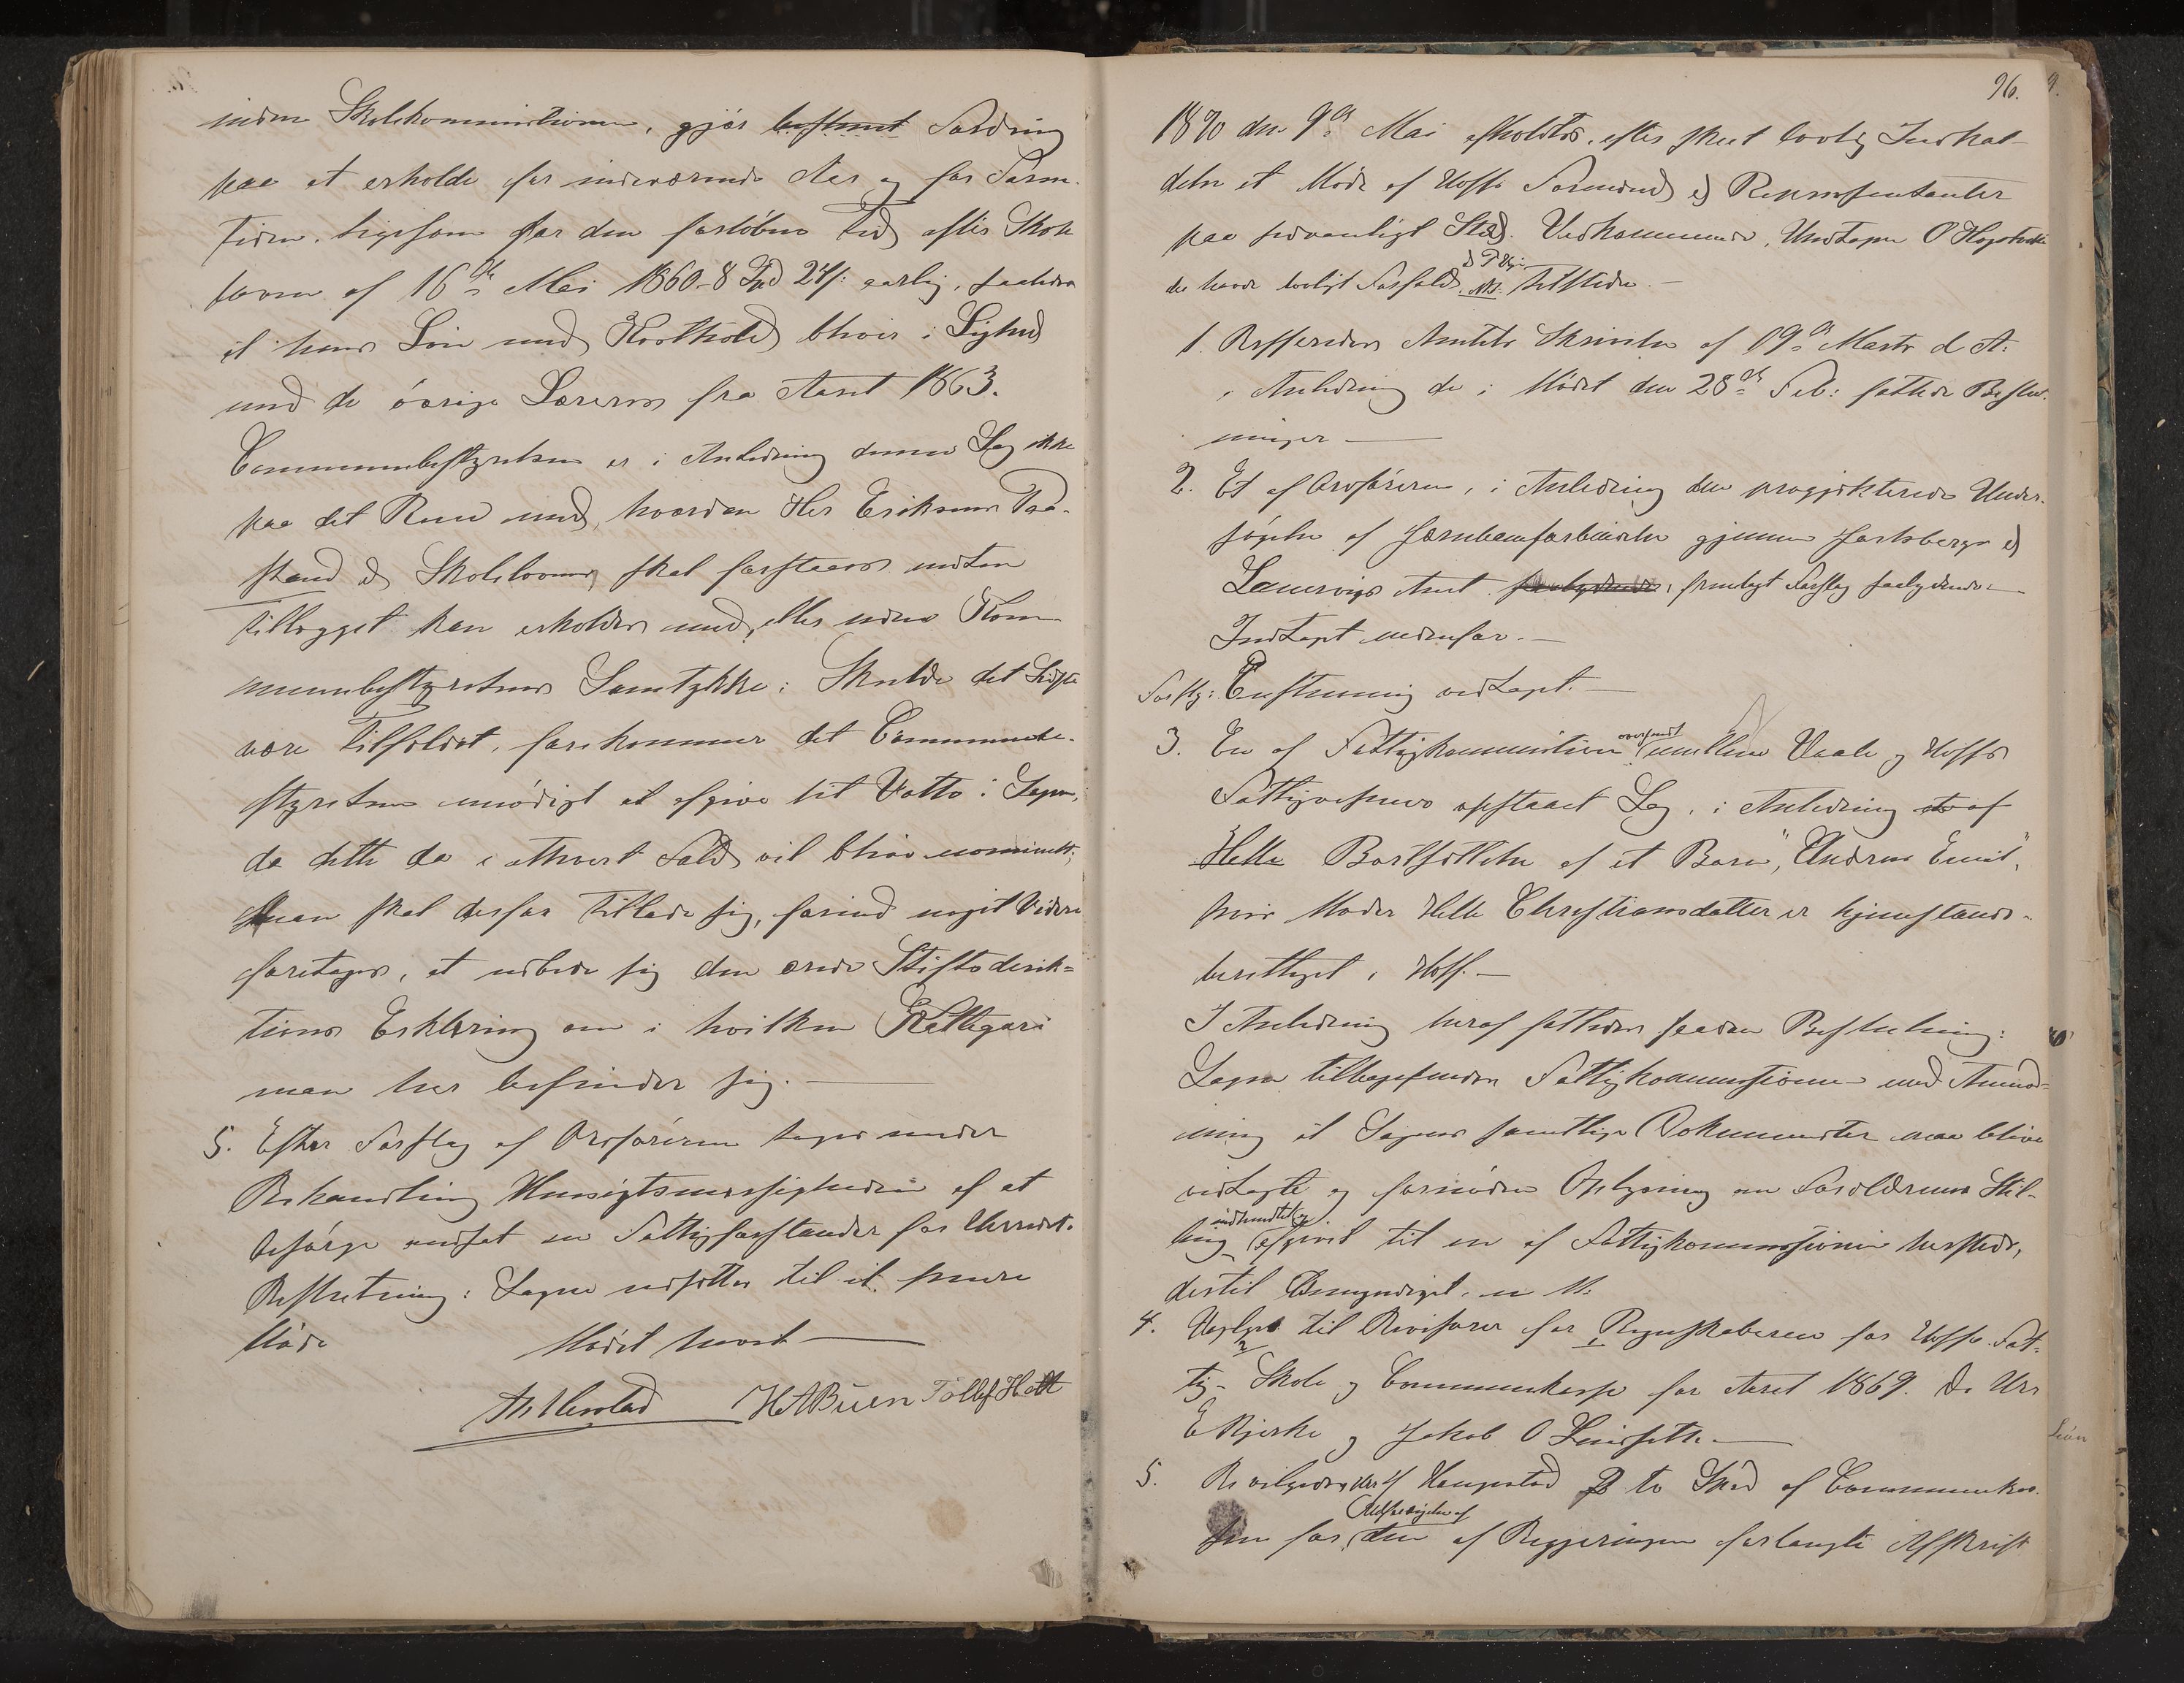 inden Skolekommissionen, gjør bestemt Fordring
paa at erholde for indeværende Aar og for Frem-
tiden, ligesom for den forløbne Tid efter Skole
loven af 16de Mai 1860 - 8 Spd 24 s: aarlig, saaledes
at hans Løn med Kosthold bliver i Lighed
med de øvrige Læreres fra Aaret 1863.
Communebestyrelsen er i Anledning denne Sag ikke
paa det Rene med, hvordan Her Eriksens Paa-
stand & Skoleloven skal forstaaes enten
Tillægget kan erholdes med, eller uden Kom-
munebestyrelsens Samtykke: Skulde det Sidste
være Tilfældet, forekommer det Communebe-
styrelsen unødigt at afgive sit Votto i Sagen,
da dette da i ethvert Fald vil blive
Man skal derfor tillade sig, forind noget videre
foretages, at udbede sig den ærede Stiftsdirek=
tions Erklæring om i hvilken Kattegori
man her befinder sig. —
5. Efter Forslag af Ordføreren toges under
Behandling Hensigtsmæssigheden af at
besørge ansat en Fattigforstander for Herredet.
Beslutning: Sagen udsættes til et senere
Møde Mødet hævet —
HABuen Tollef Holt
96.
1870 den 9de Mai afholdtes, efter skeet lovlig Indkal-
delse et Møde af Hoffs Formænd & Repræsentanter
paa sædvanligt Sted. Vedkommende, Undtagen O
der havde lovligt Forfald, NB. tilstede. —
1. Refferedes Amtets Skrivelse af 19de Marts d A:
i Anledning de i Mødet den 28de Feb: fattede Beslut-
ninger —
2. Et af Ordføreren, i Anledning den progjekterede Under-
søgelse af Jernbaneforbindelse gjennem Jarlsbergs &
Laurvigs Amt saalydende, fremlagt Forslag saalydende —
Indtagt nedenfor. —
Forslg: Enstemmig vedtaget. —
3. En af Fattigkommissionen oversendt mellem Vaale og Hoffs
Fattigvæsener opstaaet Sag, i Anledning af
Helle Bortsættelse af et Barn, "Andreas Emil",
hvis Moder Helle Christiansdatter er hjemstavns-
berettiget i Hoff. —
I Anledning heraf fattedes saadan Beslutning:
Sagen tilbagesendes Fattigkommissionen med Anmod-
ning at Sagens samtlige Dokumenter maa blive
vedlagte og fornøden Oplysning om Forældrenes Stil-
ling indhendtet og afgivet til en af Fattigkommissionen herstede,
dertil Bemyndiget,
4. Valgtes til Revisorer for Regnskaberne for Hoffs Fat-
tig- Skole og Communekasse for Aaret 1869. De Hrr
E Bjerke og Jakob O
5. Bevilgedes to Spd af Communekas-
sen for Udfærdigelse af den af Reggjeringen forlangte Afskrift